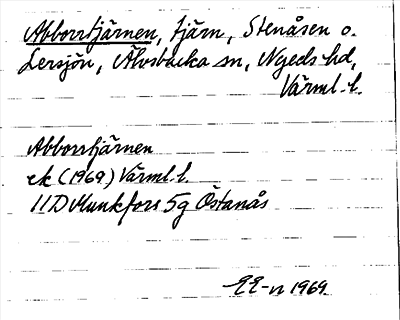 Abborrtjärnen, tjärn, Stenåsen o.
Lersjön, Älvsbacka sn, Nyeds hd,
Värml. l.
Abborrtjärnen
ek (1969) Värml. l.
11D Munkfors 5g Östanås
EE-n 1969.